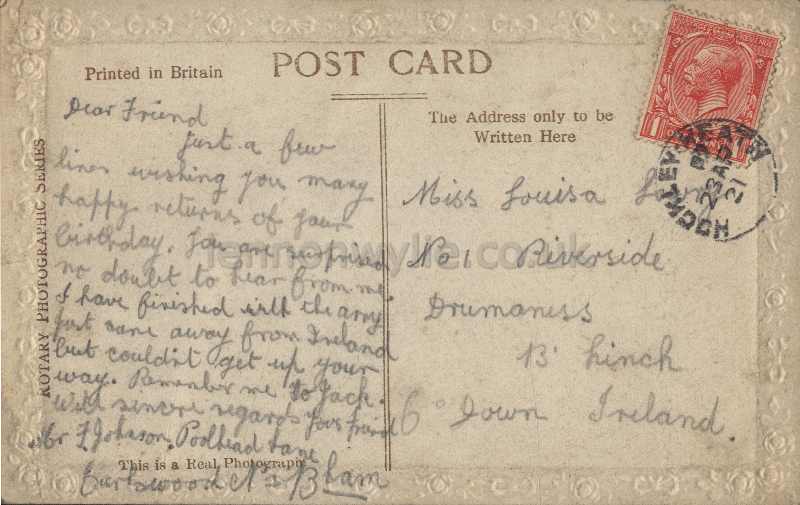 Printed in Britain
POST CARD
The Address only to be
Written Here
ROTARY PHOTOGRAPHIC SERIES
Dear Friend
Just a few
lines wishing you many
happy returns of your
birthday. You are surprised
no doubt to hear from me.
I have finished with the army
just came away from Ireland
but couldn't get up your
way. Remember me to Jack.
With sincere regards your friend
Mr F. Johnson. Poolhead Lane
Earlswood Nr Bham
This is a Real Photograph
Miss Louisa
No 1 Riverside
Drumaness
B' hinch
Co Down Ireland.
HOCKLEY HEATH
23 AP
21
lennonwylie.co.uk